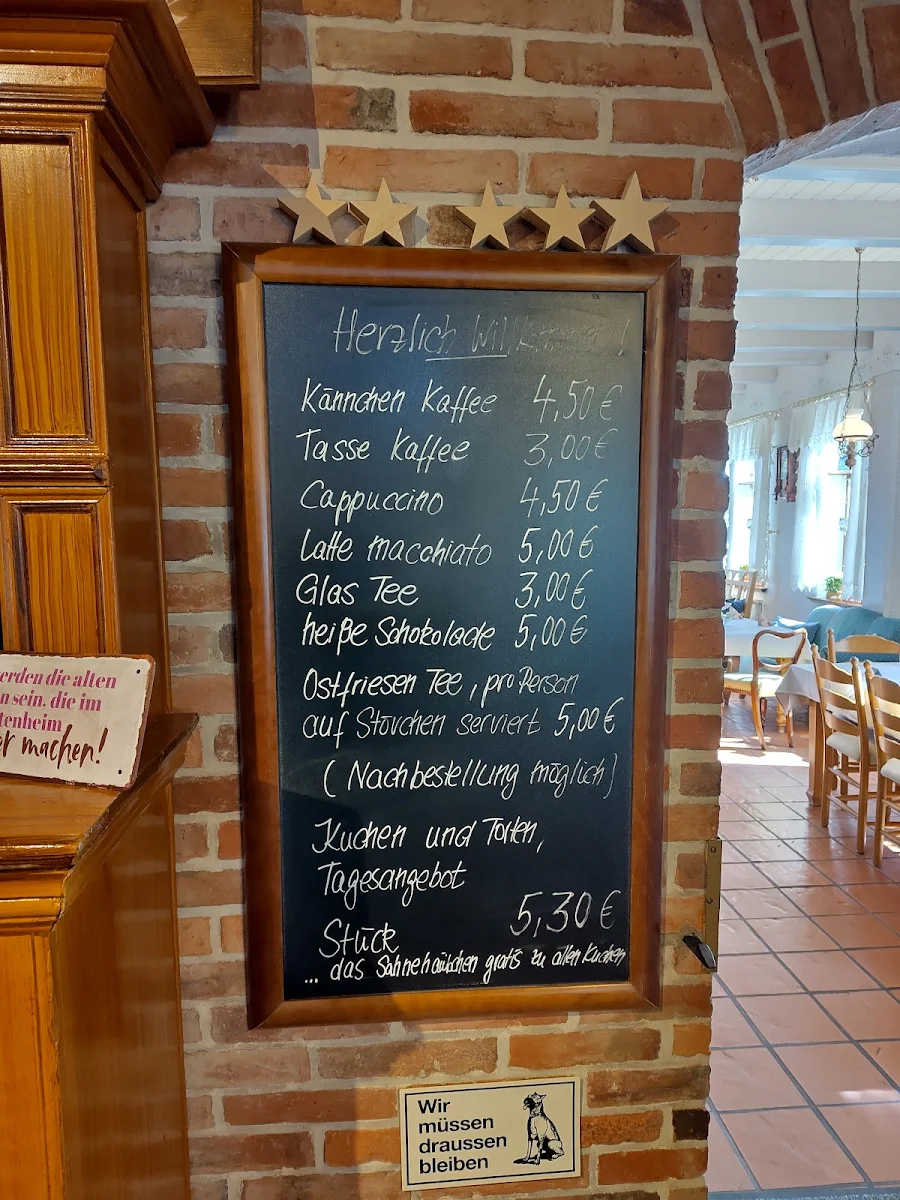 Herzlich Willkommen!
Kännchen Kaffee 4,50 €
Tasse Kaffee 3,00 €
Cappuccino 4,50 €
Latte macchiato 5,00 €
Glas Tee 3,00 €
heiße Schokolade 5,00 €
Ostfriesen Tee, pro Person
auf Stövchen serviert 5,00 €
(Nachbestellung möglich)
Kuchen und Torten,
Tagesangebot
5,30 €
Stück
... das Sahnehäubchen gratis zu allen Kuchen
erden die alten
n sein, die im
tenheim
er machen!
Wir
müssen
draussen
bleiben